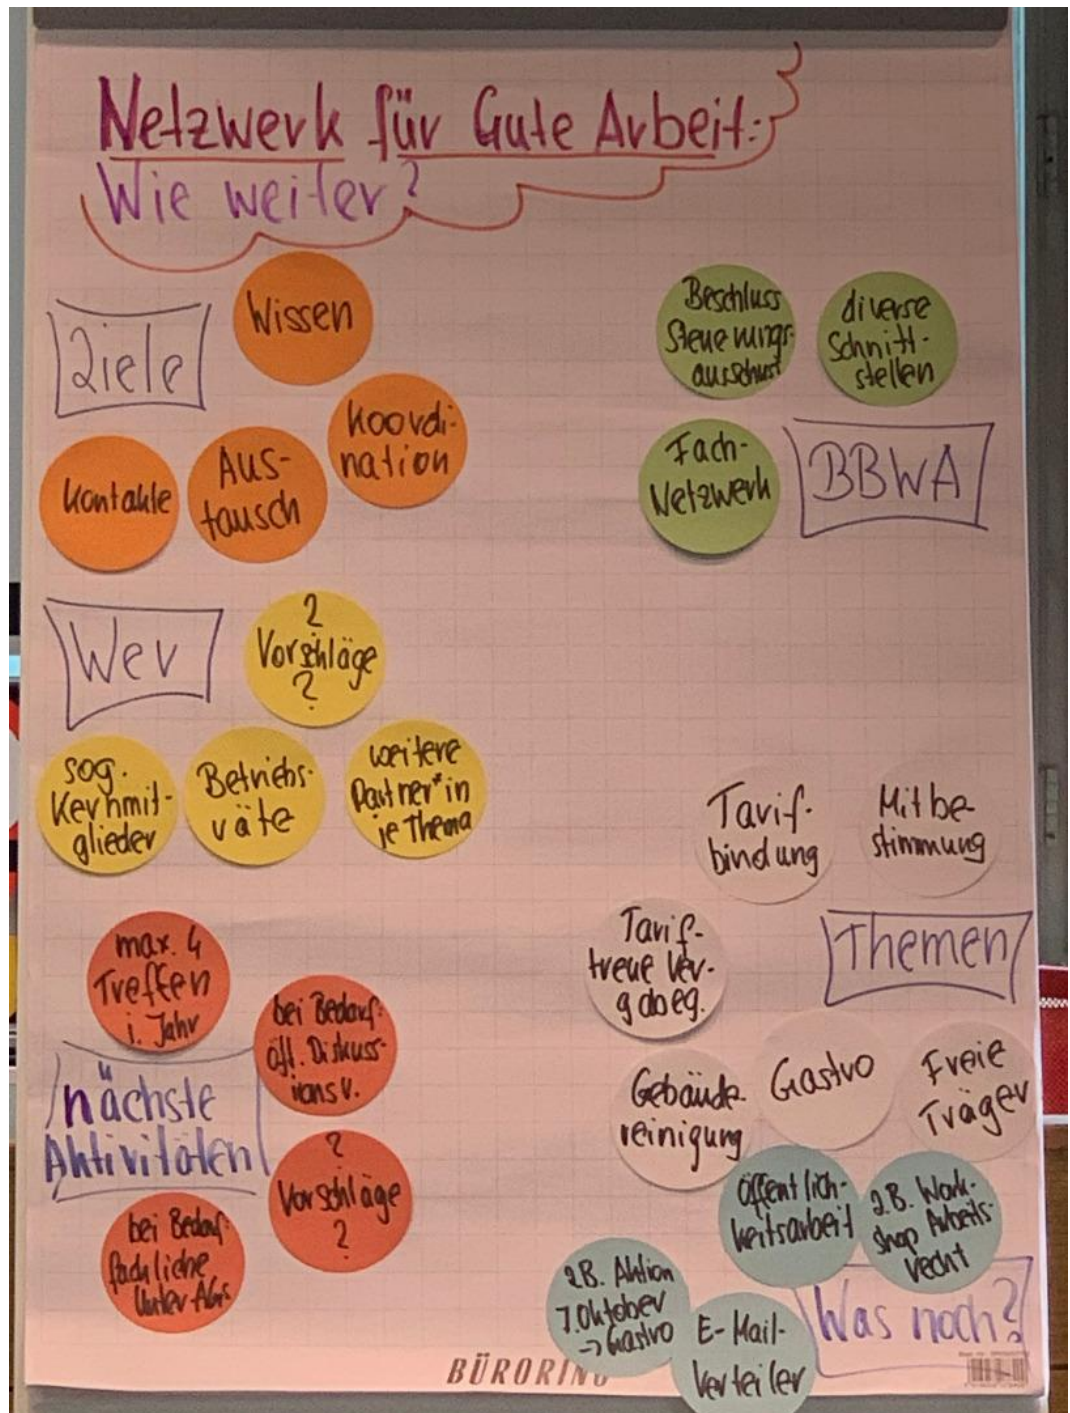 Netzwerk für Gute Arbeit:
Wie weiter?
Ziele
Wissen
Koordi-
nation
Aus-
tausch
Kontakte
Beschluss
Steuerungs-
ausschuss
diverse
Schnitt-
stellen
Fach-
Netzwerk
BBWA
Wer
?
Vorschläge
?
sog.
Kernmit-
glieder
Betriebs-
räte
weitere
Partner*in
je Thema
Tarif-
bindung
Mitbe-
stimmung
Tarif-
treue Ver-
gabeg.
Themen
Gebäude-
reinigung
Gastro
Freie
Träger
max. 4
Treffen
i. Jahr
bei Bedarf:
öff. Diskuss-
ionsv.
nächste
Aktivitäten
?
Vorschläge
?
bei Bedarf:
fachliche
Unter AGs
öffentlich-
keitsarbeit
z.B. Work-
shop Arbeits-
recht
z.B. Aktion
7. Oktober
-> Gastro
E-Mail-
Verteiler
Was noch?
BÜRORING